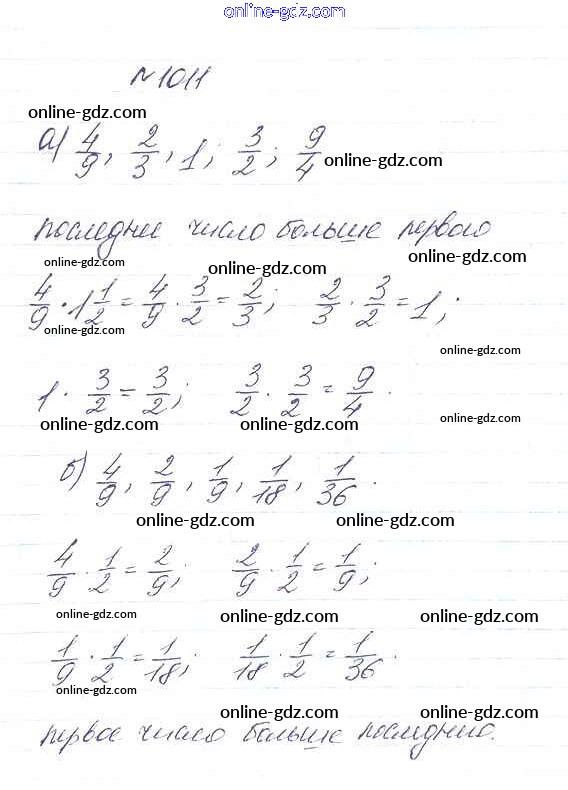 online-gdz.com
№1011
online-gdz.com
а) 4/9, 2/3, 1; 3/2; 9/4
online-gdz.com
последнее число больше первого
online-gdz.com online-gdz.com online-gdz.com
4/9 · 1 1/2 = 4/9 · 3/2 = 2/3; 2/3 · 3/2 = 1;
online-gdz.com online-gdz.com
online-gdz.com
1 · 3/2 = 3/2; 3/2 · 3/2 = 9/4.
online-gdz.com online-gdz.com online-gdz.com
б) 4/9, 2/9, 1/9, 1/18, 1/36.
online-gdz.com online-gdz.com
4/9 · 1/2 = 2/9; 2/9 · 1/2 = 1/9;
online-gdz.com online-gdz.com online-gdz.com
1/9 · 1/2 = 1/18; 1/18 · 1/2 = 1/36.
online-gdz.com
online-gdz.com online-gdz.com
первое число больше последнего.